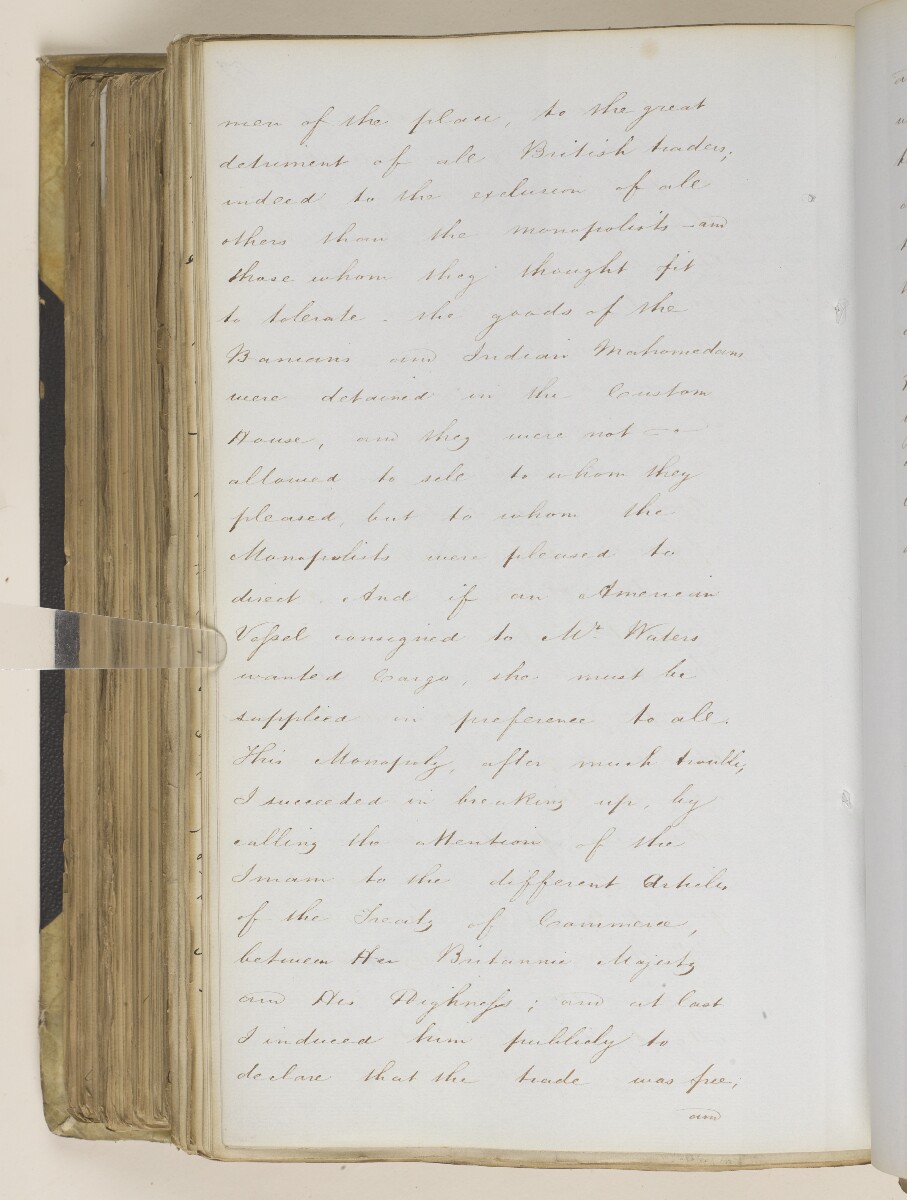 men of the place, to the great
detriment of all British traders;
indeed to the exclusion of all
others than the monopolists and
those whom they thought fit
to tolerate - the goods of the
Banians and Indian Mahomedans
were detained in the Custom
House, and they were not
allowed to sell to whom they
pleased, but to whom the
Monopolists were pleased to
direct. And if an American
Vessel consigned to Mr. Waters
wanted Cargo, she must be
supplied in preference to all.
This Monopoly, after much trouble,
I succeeded in breaking up, by
calling the attention of the
Imam to the different Articles
of the Treaty of Commerce,
between Her Britannic Majesty
and His Highness; and at last
I induced him publicly to
declare that the trade was free,
and